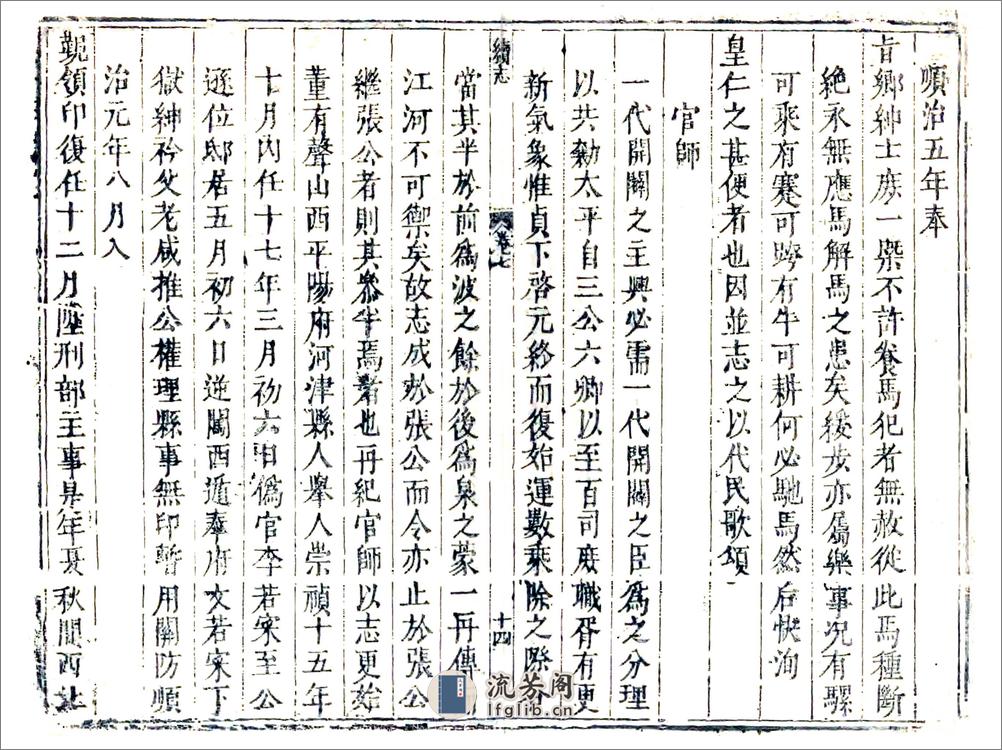 順治五年奉
旨鄉紳士庶一槩不許養馬犯者無赦從此馬種斷
絶永無應馬解馬之患矣緩步亦屬樂事况有騾
可乘有蹇可跨有牛可耕何必馳馬然后快洵
皇仁之甚便者也因並志之以代民歌頌
官師
一代開闢之主興必需一代開闢之臣爲之分理
以共勷太平自三公六卿以至百司庶職胥有更
新氣象惟貞下啓元終而復始運數乘除之際
續志
卷七
十四
當其半於前爲波之餘於後爲泉之蒙一再傳
江河不可禦矣故志成於張公而令亦止於張公
繼張公者則其叅半焉者也再紀官師以志更始
董有聲山西平陽府河津縣人舉人崇禎十五年
十月內任十七年三月初六日僞官李若宋至公
遜位邸居五月初六日逆闖西遁奉府文若宋下
獄紳衿父老咸推公權理縣事無印暫用關防順
治元年八月入
覲領印復任十二月陞刑部主事是年夏秋間西北
流芳阁
lfglib.cn